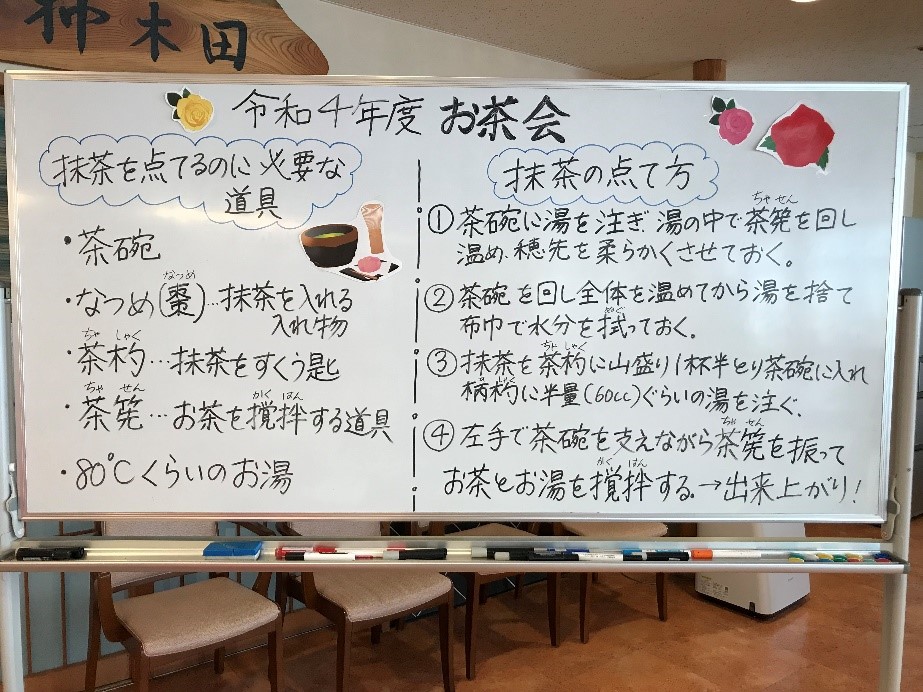 柿木田
令和4年度 お茶会
抹茶を点てるのに必要な
道具
・茶碗
なつめ
・なつめ(棗)…抹茶を入れる
入れ物
ちゃ しゃく
・茶杓…抹茶をすくう匙
ちゃ せん かく はん
・茶筅…お茶を撹拌する道具
・80℃くらいのお湯
抹茶の点て方
ちゃ せん
①茶碗に湯を注ぎ湯の中で茶筅を回し
温め、穂先を柔らかくさせておく。
②茶碗を回し全体を温めてから湯を捨て
ぬぐ
布巾で水分を拭っておく。
ちゃ しゃく
③抹茶を茶杓に山盛り1杯半とり茶碗に入れ
柄杓に半量(60cc)ぐらいの湯を注ぐ.
ちゃ せん
④左手で茶碗を支えながら茶筅を振って
かく はん
お茶とお湯を撹拌する.→出来上がり!